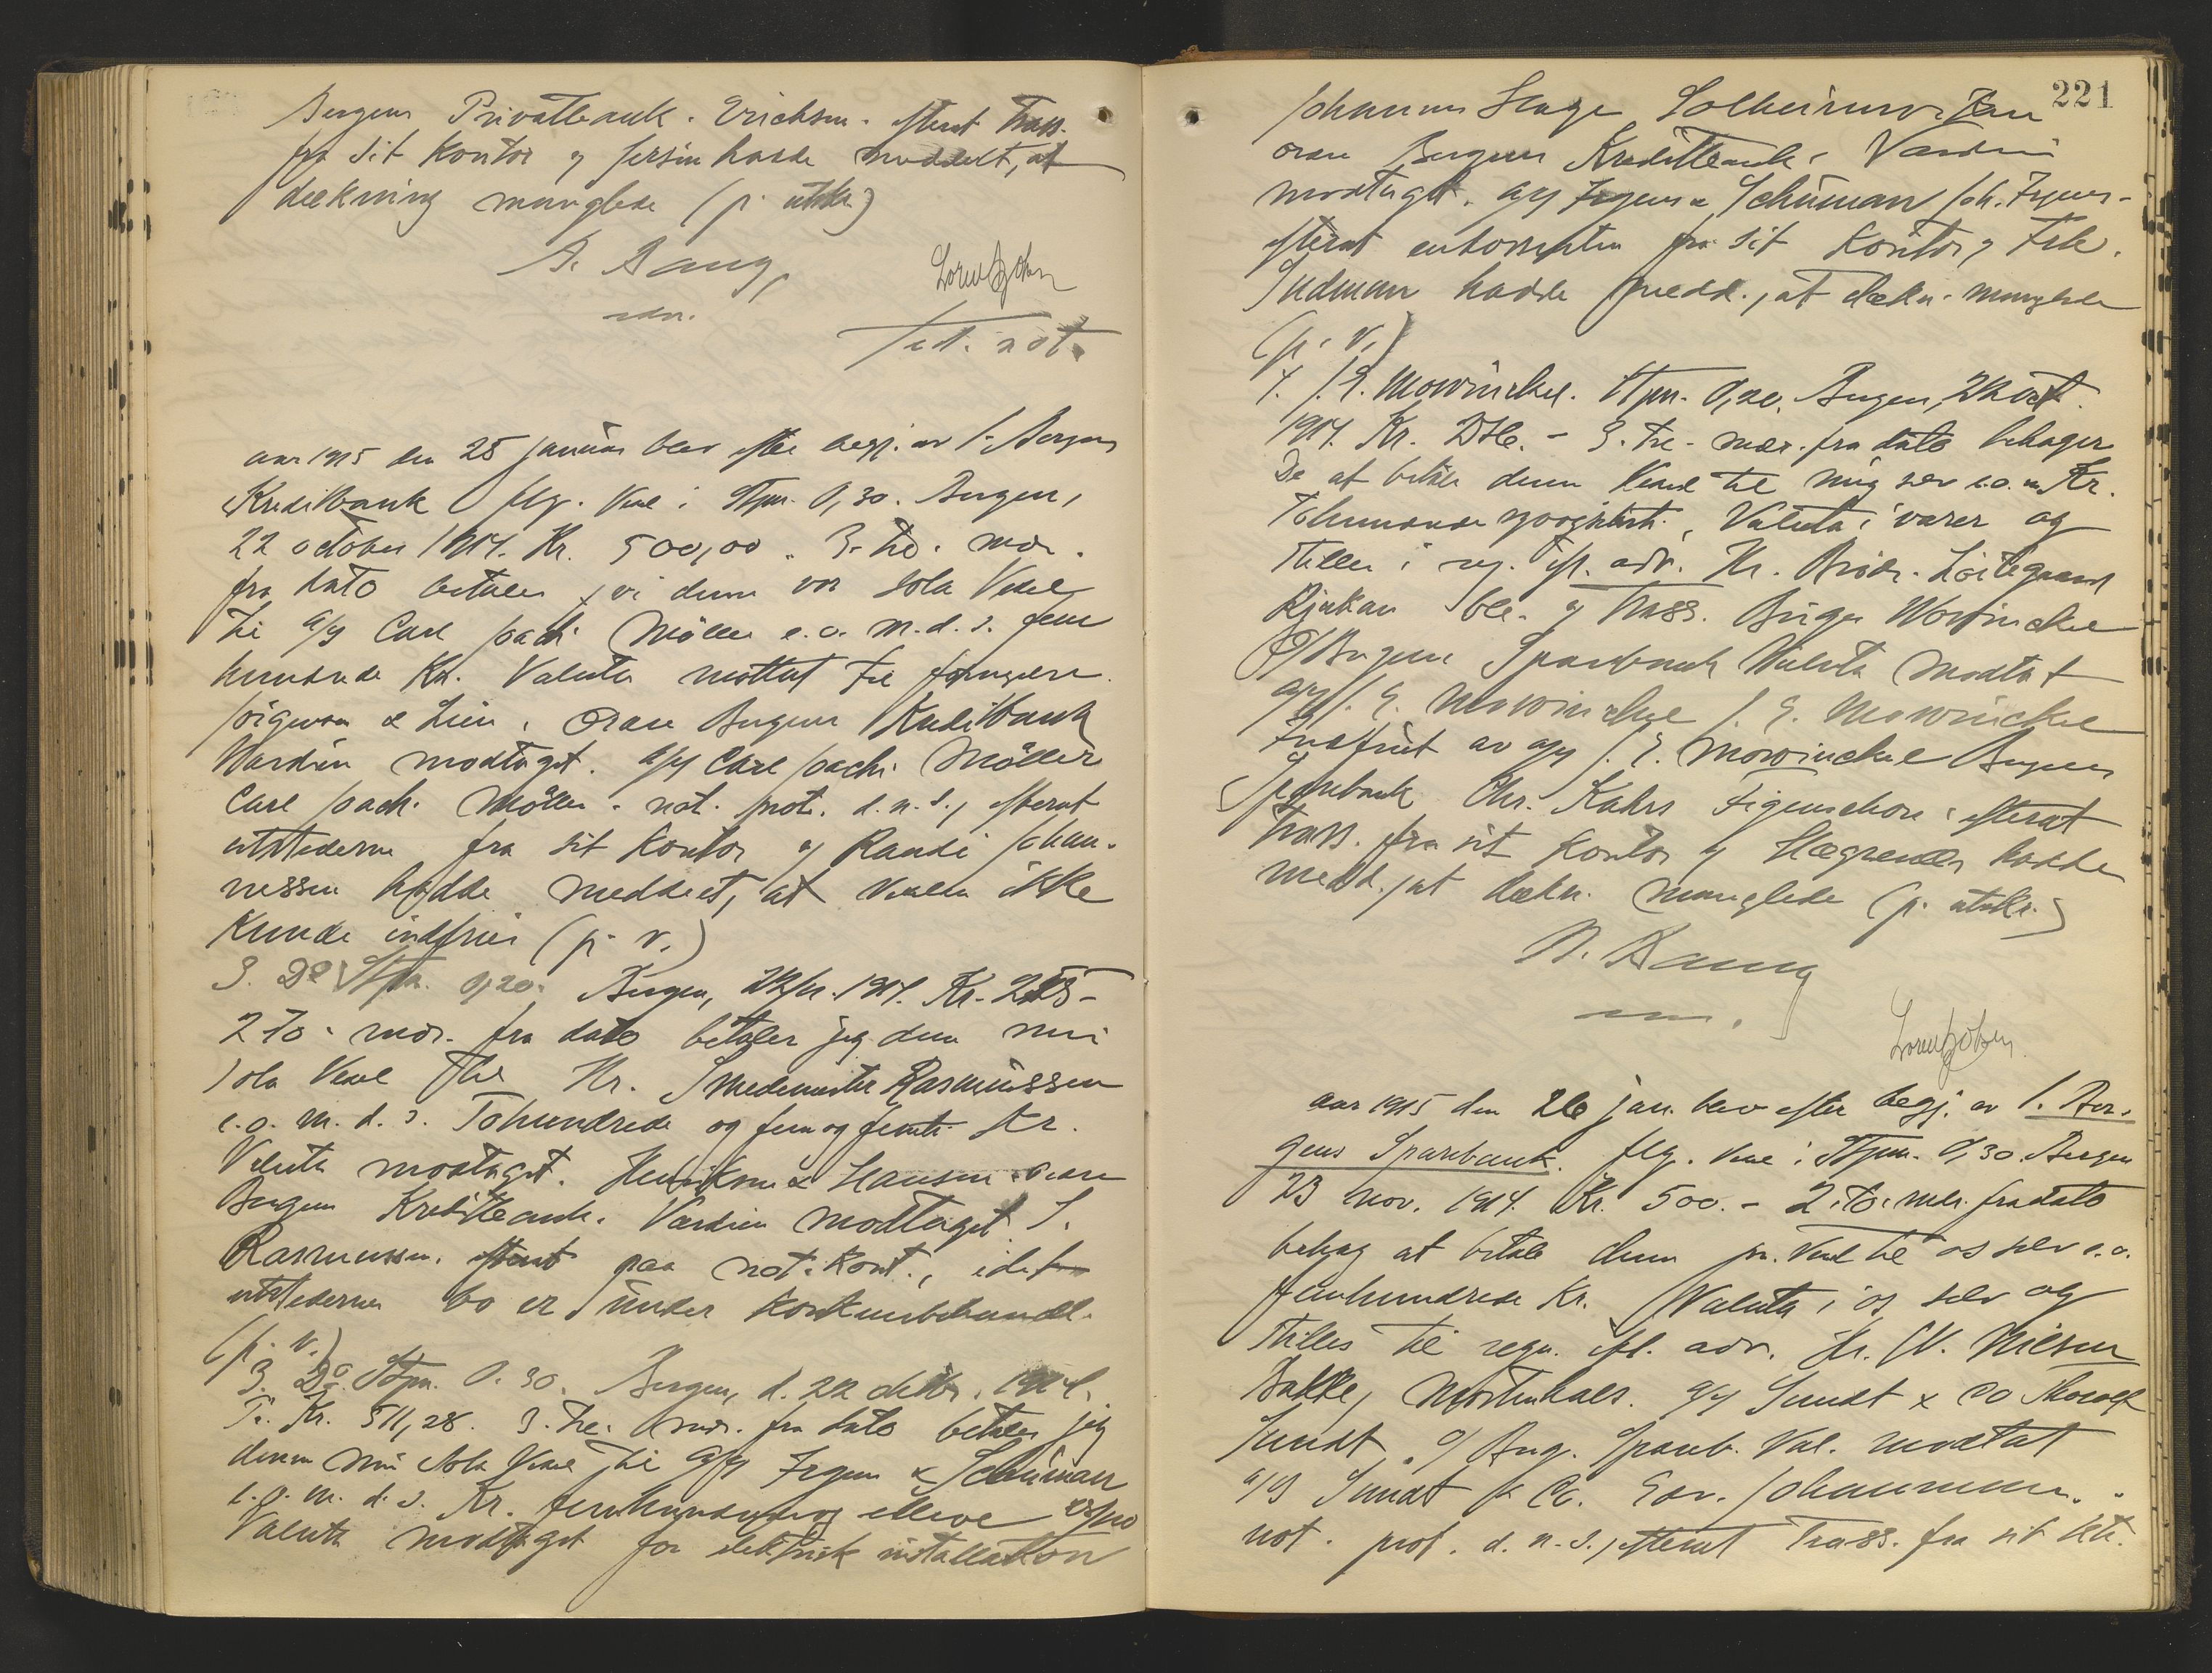 Bergens Privatbank. Erichsen. efterat Trass.
fra sit Kontor og hadde meddelt, at
dækning manglede (p. utskr.)
B. Bang,
Lorentzohn
not.
aar 1915 den 25 januar blev efter begj. av 1. Bergens
Kreditbank flg. Vexl: Stpm. 0,30. Bergen,
22 october 1914. Kr. 500,00. 3. tre. mdr.
fra dato betaler vi denne vor Sola Vexel
til A/S Carl Joach. Möller e.o. m.d.s. fem
hundrede Kr. Valuta mottat
Jörgensen & Lien. Ordre Bergens Kreditbank
Værdien modtaget. A/S Carl Joach. Möller
Carl Joach. Möller. not. prot. d.n.s., efterat
utstederne fra sit Kontor v/ Randi Johan-
nessen hadde meddelt, at Vexlen ikke
kunde indfries (p. v.)
2. Do Stpm. 0,20. Bergen, 1914. Kr. 255-
2 To. mdr. fra dato betaler jeg denne min
Sola Vexel til Hr. Smedemester Rasmussen
e.o. m.d.s. Tohundrede og fem og femti Kr.
Valuta modtaget. Henriksen & Hansen. ordre
Bergens Kreditbank. Værdien modtaget. S.
Rasmussen. efterat paa not. Kont., idet
utstedernes bo er under Konkursbehandl.
(p. v.)
3. Do. Stpm. 0.30. Bergen, d. 22 oktbr. 1914.
Kr. 511,28. 3. tre. mdr. fra dato betaler jeg
denne min Sola Vexel til A/S & Schüman
e.o. m.d.s. Kr. femhundrede og elleve 28/100
Valuta modtaget for elektrisk installation
221
Johannes Hage Solheimsviken
ordre Bergens Kreditbank. Værdien
modtaget. A/S & Schüman Joh.
efterat fra sit Kontor v/
hadde medd., at dækn. manglede
(p. v.)
4. J. E. Mowinckel. Stpm. 0,20. Bergen, 22 oct.
1914. Kr. 226. - 3. tre. mdr. fra dato behager
De at betale denne Vexel til mig selv e.o. m. Kr.
Tohundrede, Valuta i varer og
stilles i reg. ifl. adv. Hr. Brödr.
Rjukan bet. v/ Trass. Birger Mowinckel
O/ Bergens Sparebank Valuta modtat
A/S J. E. Mowinckel J. E. Mowinckel
Indfriet av A/S J. E. Mowinckel Bergens
Sparebank Chr. Kahrs efterat
Trass. fra sit Kontor v/ hadde
medd., at dækn. manglede (p. utskr.)
B. Bang
Lorentzohn
aar 1915 den 26 jan. blev efter begj. av 1. Ber-
gens Sparebank. flg. Vexl: Stpm. 0,30. Bergen
23 nov. 1914. Kr. 500.- 2. to. mdr. fra dato
behag at betale denne pr. Vexel til os selv e.o.
femhundrede Kr. Valuta i os selv og
stilles til regn. ifl. adv. Hr. W. Nilsen
Bakke, A/S Sundt & Co Thorolf
Sundt. O/ Berg. Spareb. Val. modtat
A/S Sundt & Co. Edv. Johannessen.
not. prot. d.n.s., efterat Trass. fra sit Ktr.